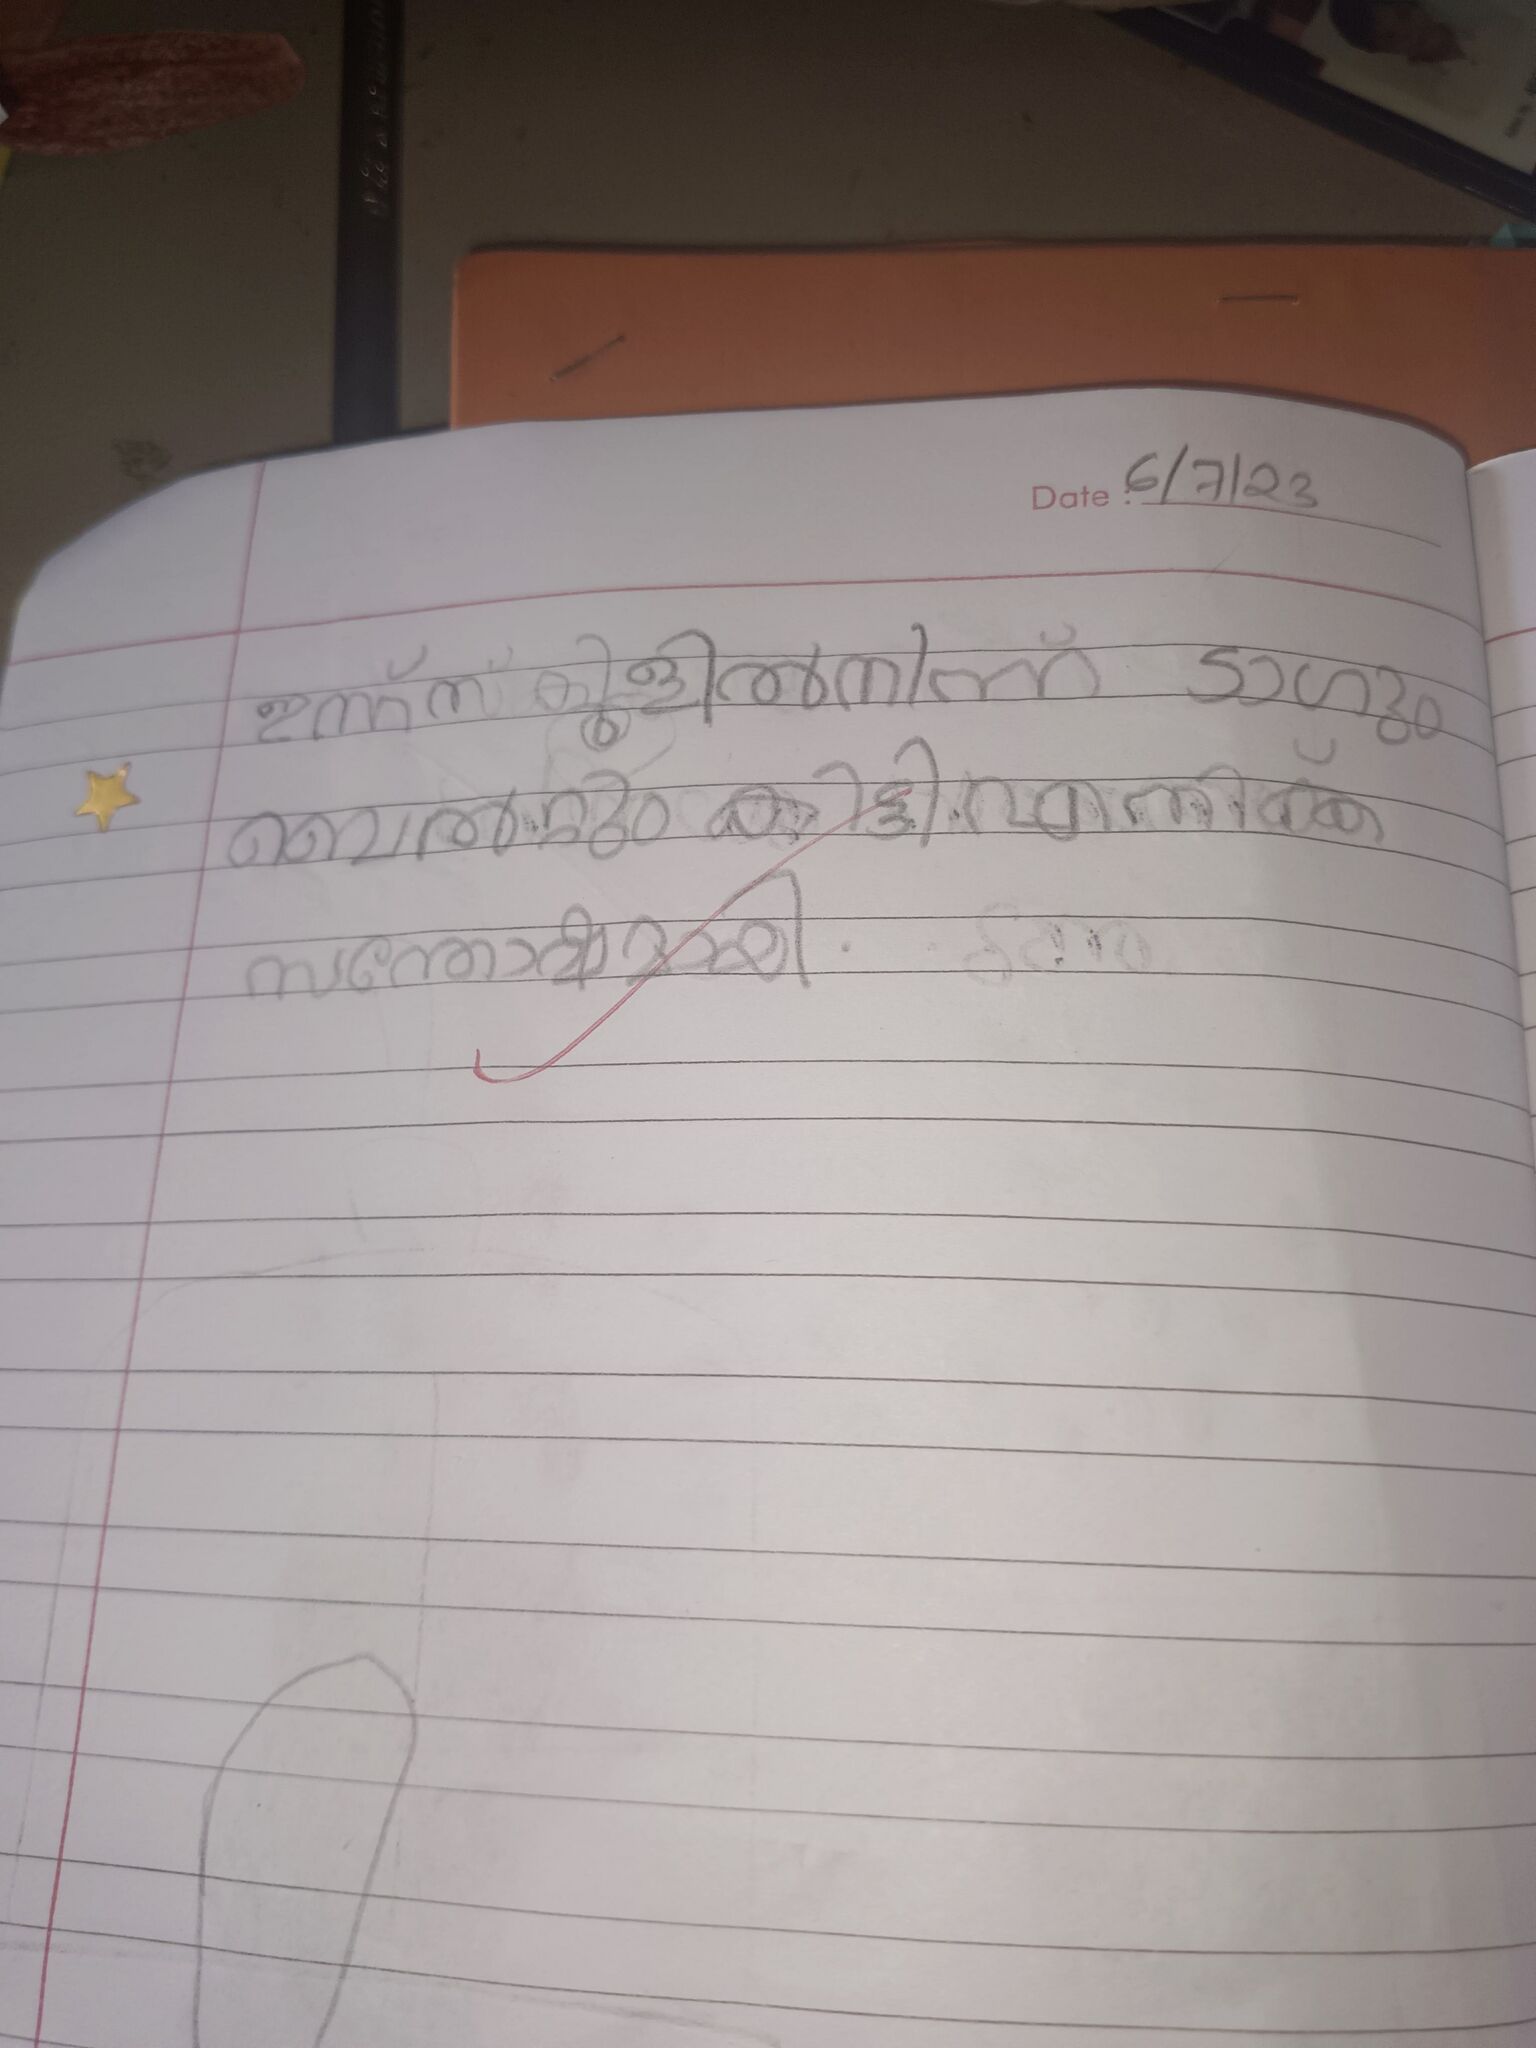 Date : 6/7/23
ഇന്ന് സ്കൂളിൽനിന്ന് ടാഗും
ബെൽറ്റും കിട്ടി. എനിക്ക്
സന്തോഷമായി.